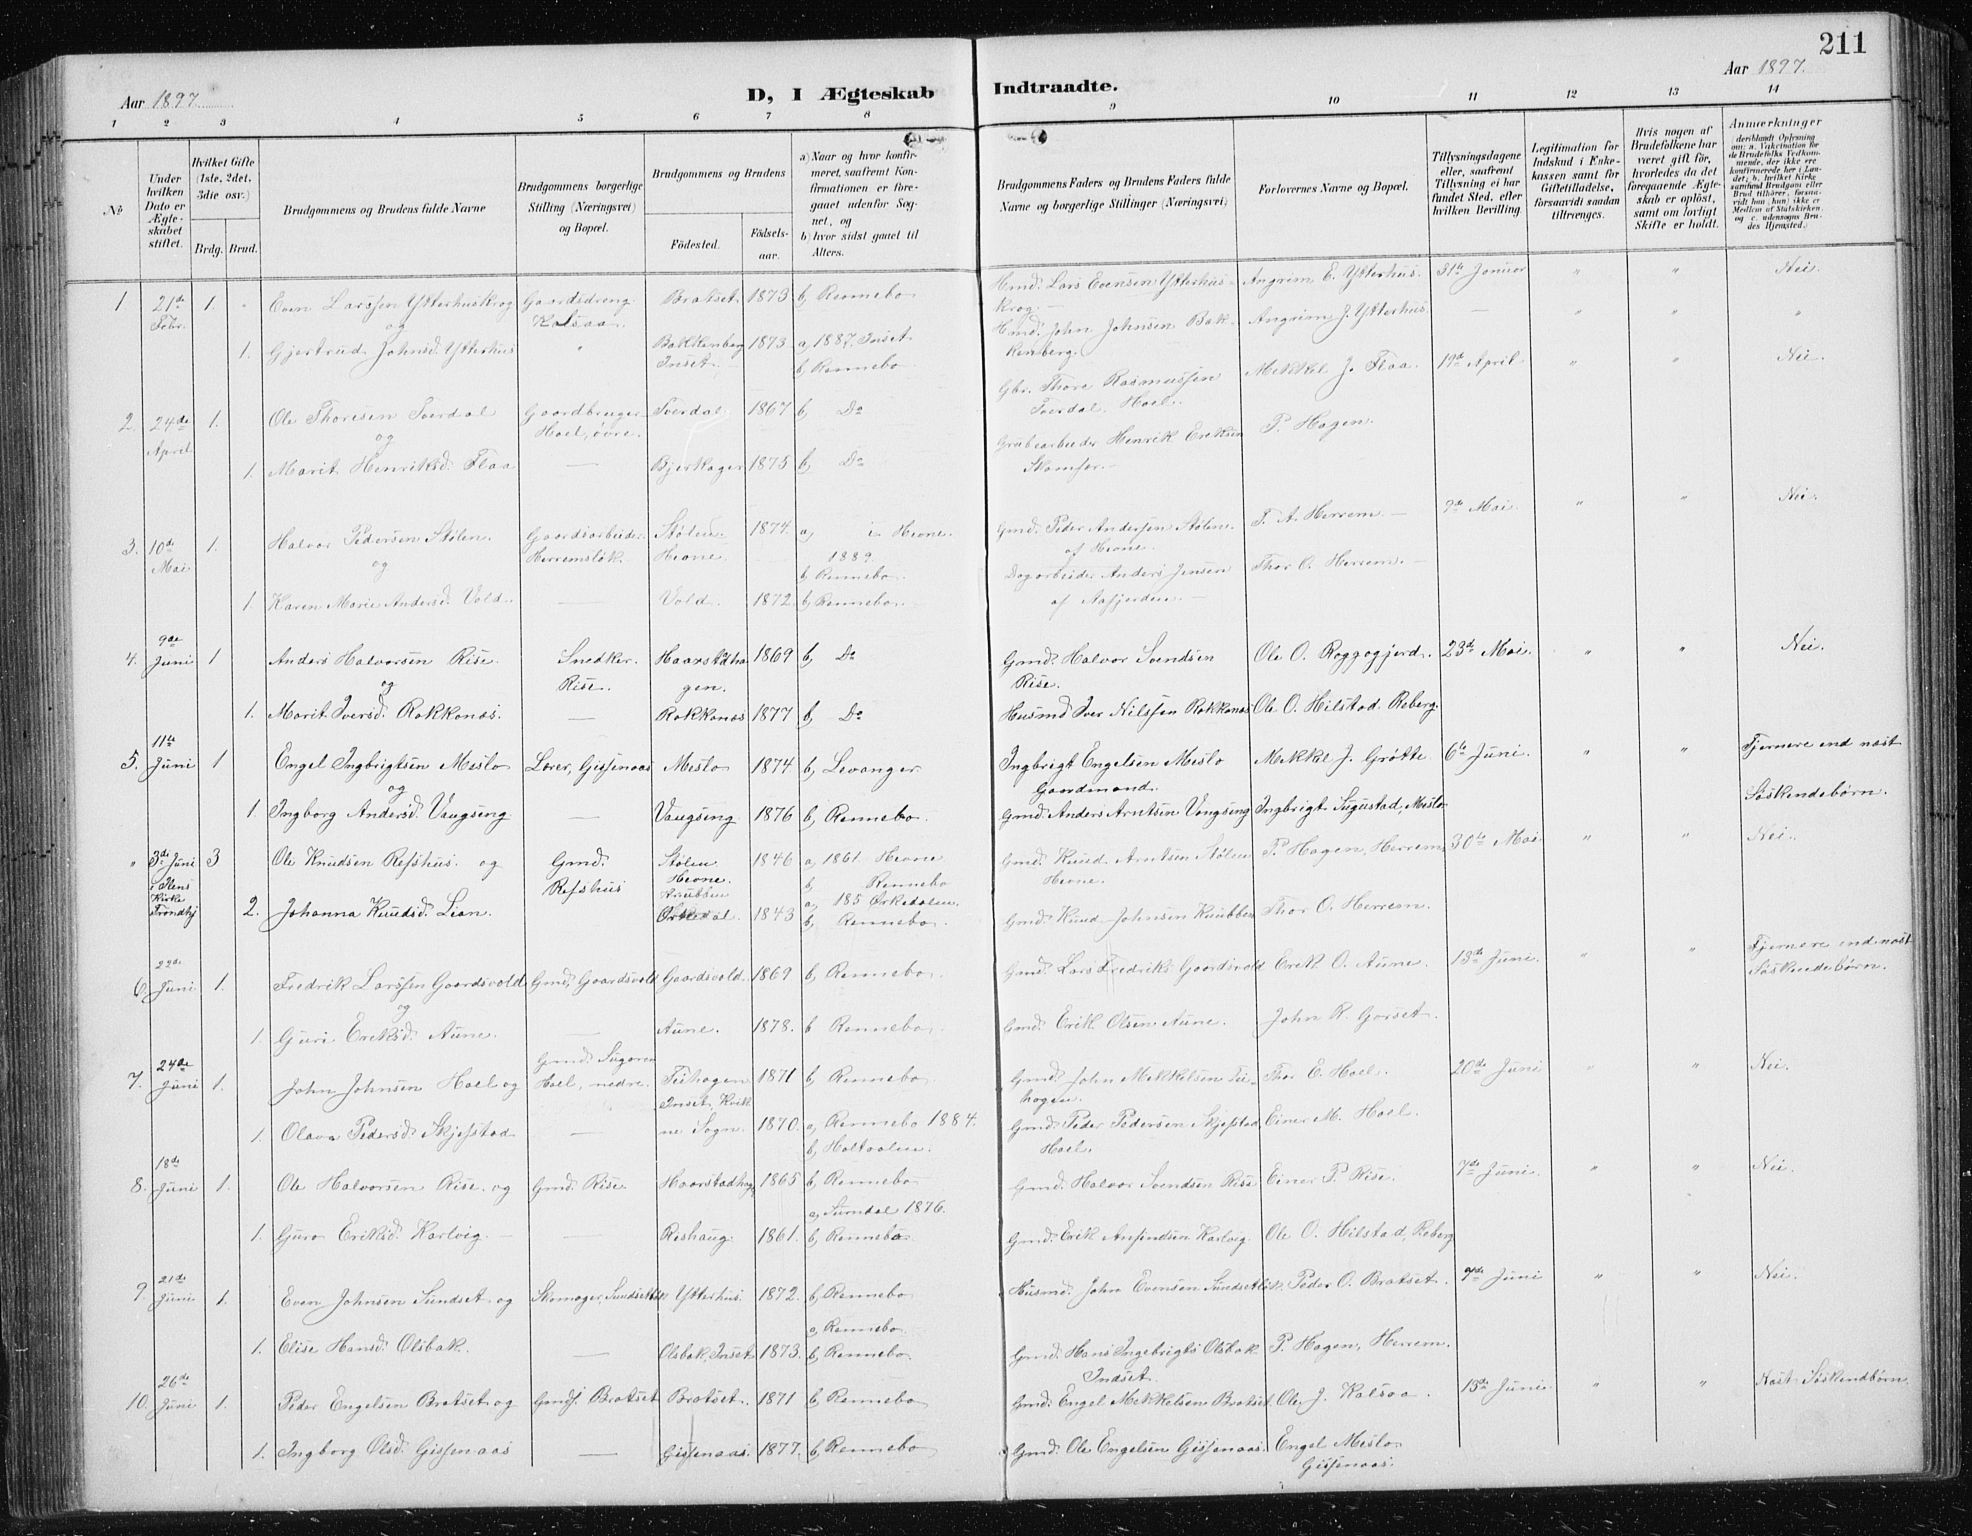 211
Aar 1897.
D, I Ægteskab Indtraadte.
Aar 1897.
1 2 3 4 5 6 7 8 9 10 11 12 13 14
No
Under hvilken Dato er Ægteskabet stiftet.
Hvilket Gifte (1ste, 2det, 3die osv.)
Brdg. Brud.
Brudgommens og Brudens fulde Navne
Brudgommens borgerlige Stilling (Næringsvei) og Bopæl.
Brudgommens og Brudens
Födested. Födselsaar.
a) Naar og hvor konfirmeret, saafremt Konfirmationen er foregaaet udenfor Sognet, og
b) hvor sidst gaaet til Alters.
Brudgommens Faders og Brudens Faders fulde Navne og borgerlige Stillinger (Næringsvei)
Forlovernes Navne og Bopæl.
Tillysningsdagene eller, saafremt Tillysning ei har fundet Sted, efter hvilken Bevilling.
Legitimation for Indskud i Enkekassen samt for Giftetilladelse, forsaavidt saadan tiltrænges.
Hvis nogen af Brudefolkene har været gift för, hvorledes da det foregaaende Ægteskab er oplöst, samt om lovligt Skifte er holdt.
Anmærkninger
(deriblandt Oplysning om: a. Vakcination for de Brudefolks Vedkommende, der ikke ere konfirmerede her i Landet; b. hvilket Kirkesamfund Brudgom eller Brud tilhörer, forsaavidt han (hun) ikke er Medlem af Statskirken, og c. udensogns Brudes Hjemsted.)
1 21de Febr. 1. Even Larssen Ytterhuskrog Gaardsdreng Kalsaa. Bratset. 1873 b, Rennebo Hmd. Lars Evensen Ytterhuskrog. Angrim E. Ytterhus. 31te Januar " " Nei.
og
1. Gjertrud Johnsd. Ytterhus " Bakkenberg Inset. 1873 a, 1887. Inset. b, Rennebo Hmd. John Johnsen Bakkenberg. Angrim J. Ytterhus. — " " "
2. 24de April 1. Ole Thoresen Sverdal Gaardbruger Hoel, övre. Sverdal. 1867 b, Do Gbr. Thore Rasmussen Sverdal. Hoel. Mekkel J. Flaa. 19de April " " Nei.
og
1. Marit Henriksd. Flaa — Bjerkager 1875 b, Do Grubearbeider Henrik Eriksen P. Hagen.
3. 10de Mai 1. Halvor Pedersen Stølen. Gaardsarbeider Herremsløk. Stølen Heone. 1874. a, i Heone. 1889 b, Rennebo. Gmd. Peder Andersen Stølen. af Heone. T. A. Herrem. — 9de Mai. " " Nei.
og
1. Karen Marie Andersd. Vold. — Vold. 1872. b, Rennebo. Dagarbeider Anders Jensen af Aafjorden. — Thor O. Herrem. —
4. 9de Juni 1 Anders Halvorsen Rise. Snedker. Rise. Haarstadhagen. 1869 b, Do Gmd. Halvor Svendsen Rise. Ole O. Roggogjerd. 23de Mai. " " Nei.
og
1. Marit Iversd. Rokkonæs. — Rokkonæs 1877 b, Do Husmd Iver Nilssen Rokkonæs Ole O. Hilstad. Reberg.
5. 11te Juni 1 Engel Ingbrigtsen Meslo Lærer, Gissenaas Meslo 1874 b, Levanger. Ingbrigt Engelsen Meslo Gaardmand. Mekkel J. Grøtte 6te Juni. " " Fjernere end næst Søskendebörn.
og
1. Ingborg Andersd. Vangseng — Vangseng. 1876 b, Rennebo. Gmd. Anders Arntsen Vangseng Ingbrigt Sugustad, Meslo
" 3de Juni i Ilens Kirke Trondhj 3 Ole Knudsen Refshus. og Gmd. Refshus Stølen Heone. 1846 a, 1861 Heone b, Rennebo Gmd. Knud Arntsen Stølen Heone. P. Hagen, Herrem, 30te Mai " " Nei.
2. Johanna Knudsd. Lian. Knubben Örkedal. 1843 a, 185 Örkedalen. b, Rennebo. Gmd. Knud Johnsen Knubben Thor O. Herrem.
6. 22de Juni 1. Fredrik Larssen Gaardsvold Gmd, Gaardsvold Gaardsvold. 1869 b, Rennebo. Gmd. Lars Fredriks. Gaardsvold Erik O. Aune. 13de Juni. " " Fjernere end næst Søskendebörn.
og
1. Guri Eriksd. Aune. — Aune. 1878. b Rennebo. Gmd. Erik Olsen Aune. John R. Gorset.
7. 24de Juni 1. John Johnsen Hoel og Gmd. Hoel, nedre. 1871 b, Rennebo. Gmd. John Mekkelsen Thor E. Hoel. 20de Juni " " Nei.
1. Olava Pedersd. Skjefstad — Inset, Kvikne Sogn. 1870. a, Rennebo 1884. b, Holtaalen. Gmd. Peder Pedersen Skjefstad, Hoel. Einer M. Hoel.
8. 18de Juni 1. Ole Halvorsen Rise. og Gmd. Rise. Haarstadhag. 1865 b, Rennebo. Gmd. Halvor Svendsen Rise Einer P. Rise. 7de Juni. " " Nei.
1. Guro Eriksd. Karlvig. — — Reshaug. 1861. a, Surndal 1876. b, Rennebo Gmd. Erik Karlvig. Ole O. Hilstad, Reberg
9. 21de Juni 1. Even Johnsen Sundset og Skomager, Sundsetløk Ytterhus. 1872. b, Rennebo Husmd. John Evensen Sundsetløk. Peder O. Bratset. 7de Juni " " Nei.
1. Elise Hansd. Olsbak. — Olsbak, Inset 1873. a, Rennebo. b, Rennebo. Gmd. Hans Ingebrigts. Olsbak Indset. P. Hagen, Herrem.
10. 26de Juni 1. Peder Engelsen Bratset og Gmds. Bratset Bratset. 1871 b, Rennebo Gmd. Engel Mekkelsen Bratset Ole J. Kalsaa. 13de Juni. " " Næst Søskendbörn.
1. Ingborg Olsd. Gissenaas — Gissenaas. 1877. b, Rennebo Gmd. Ole Engelsen Gissenaas. Engel Meslo. Gissenaas.